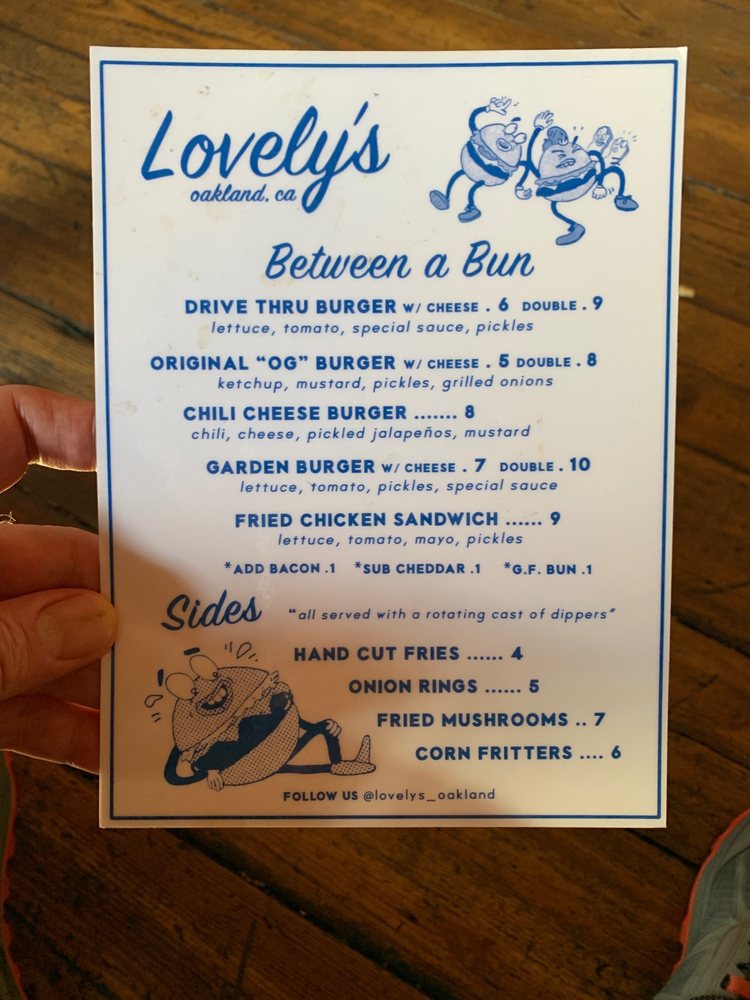 Lovely's
oakland, ca
Between a Bun
DRIVE THRU BURGER W/ CHEESE . 6 DOUBLE . 9
lettuce, tomato, special sauce, pickles
ORIGINAL "OG" BURGER W/ CHEESE . 5 DOUBLE . 8
ketchup, mustard, pickles, grilled onions
CHILI CHEESE BURGER ....... 8
chili, cheese, pickled jalapeños, mustard
GARDEN BURGER W/ CHEESE . 7 DOUBLE . 10
lettuce, tomato, pickles, special sauce
FRIED CHICKEN SANDWICH ...... 9
lettuce, tomato, mayo, pickles
*ADD BACON .1 *SUB CHEDDAR .1 *G.F. BUN .1
Sides "all served with a rotating cast of dippers"
HAND CUT FRIES ...... 4
ONION RINGS ...... 5
FRIED MUSHROOMS .. 7
CORN FRITTERS .... 6
FOLLOW US @lovelys_oakland